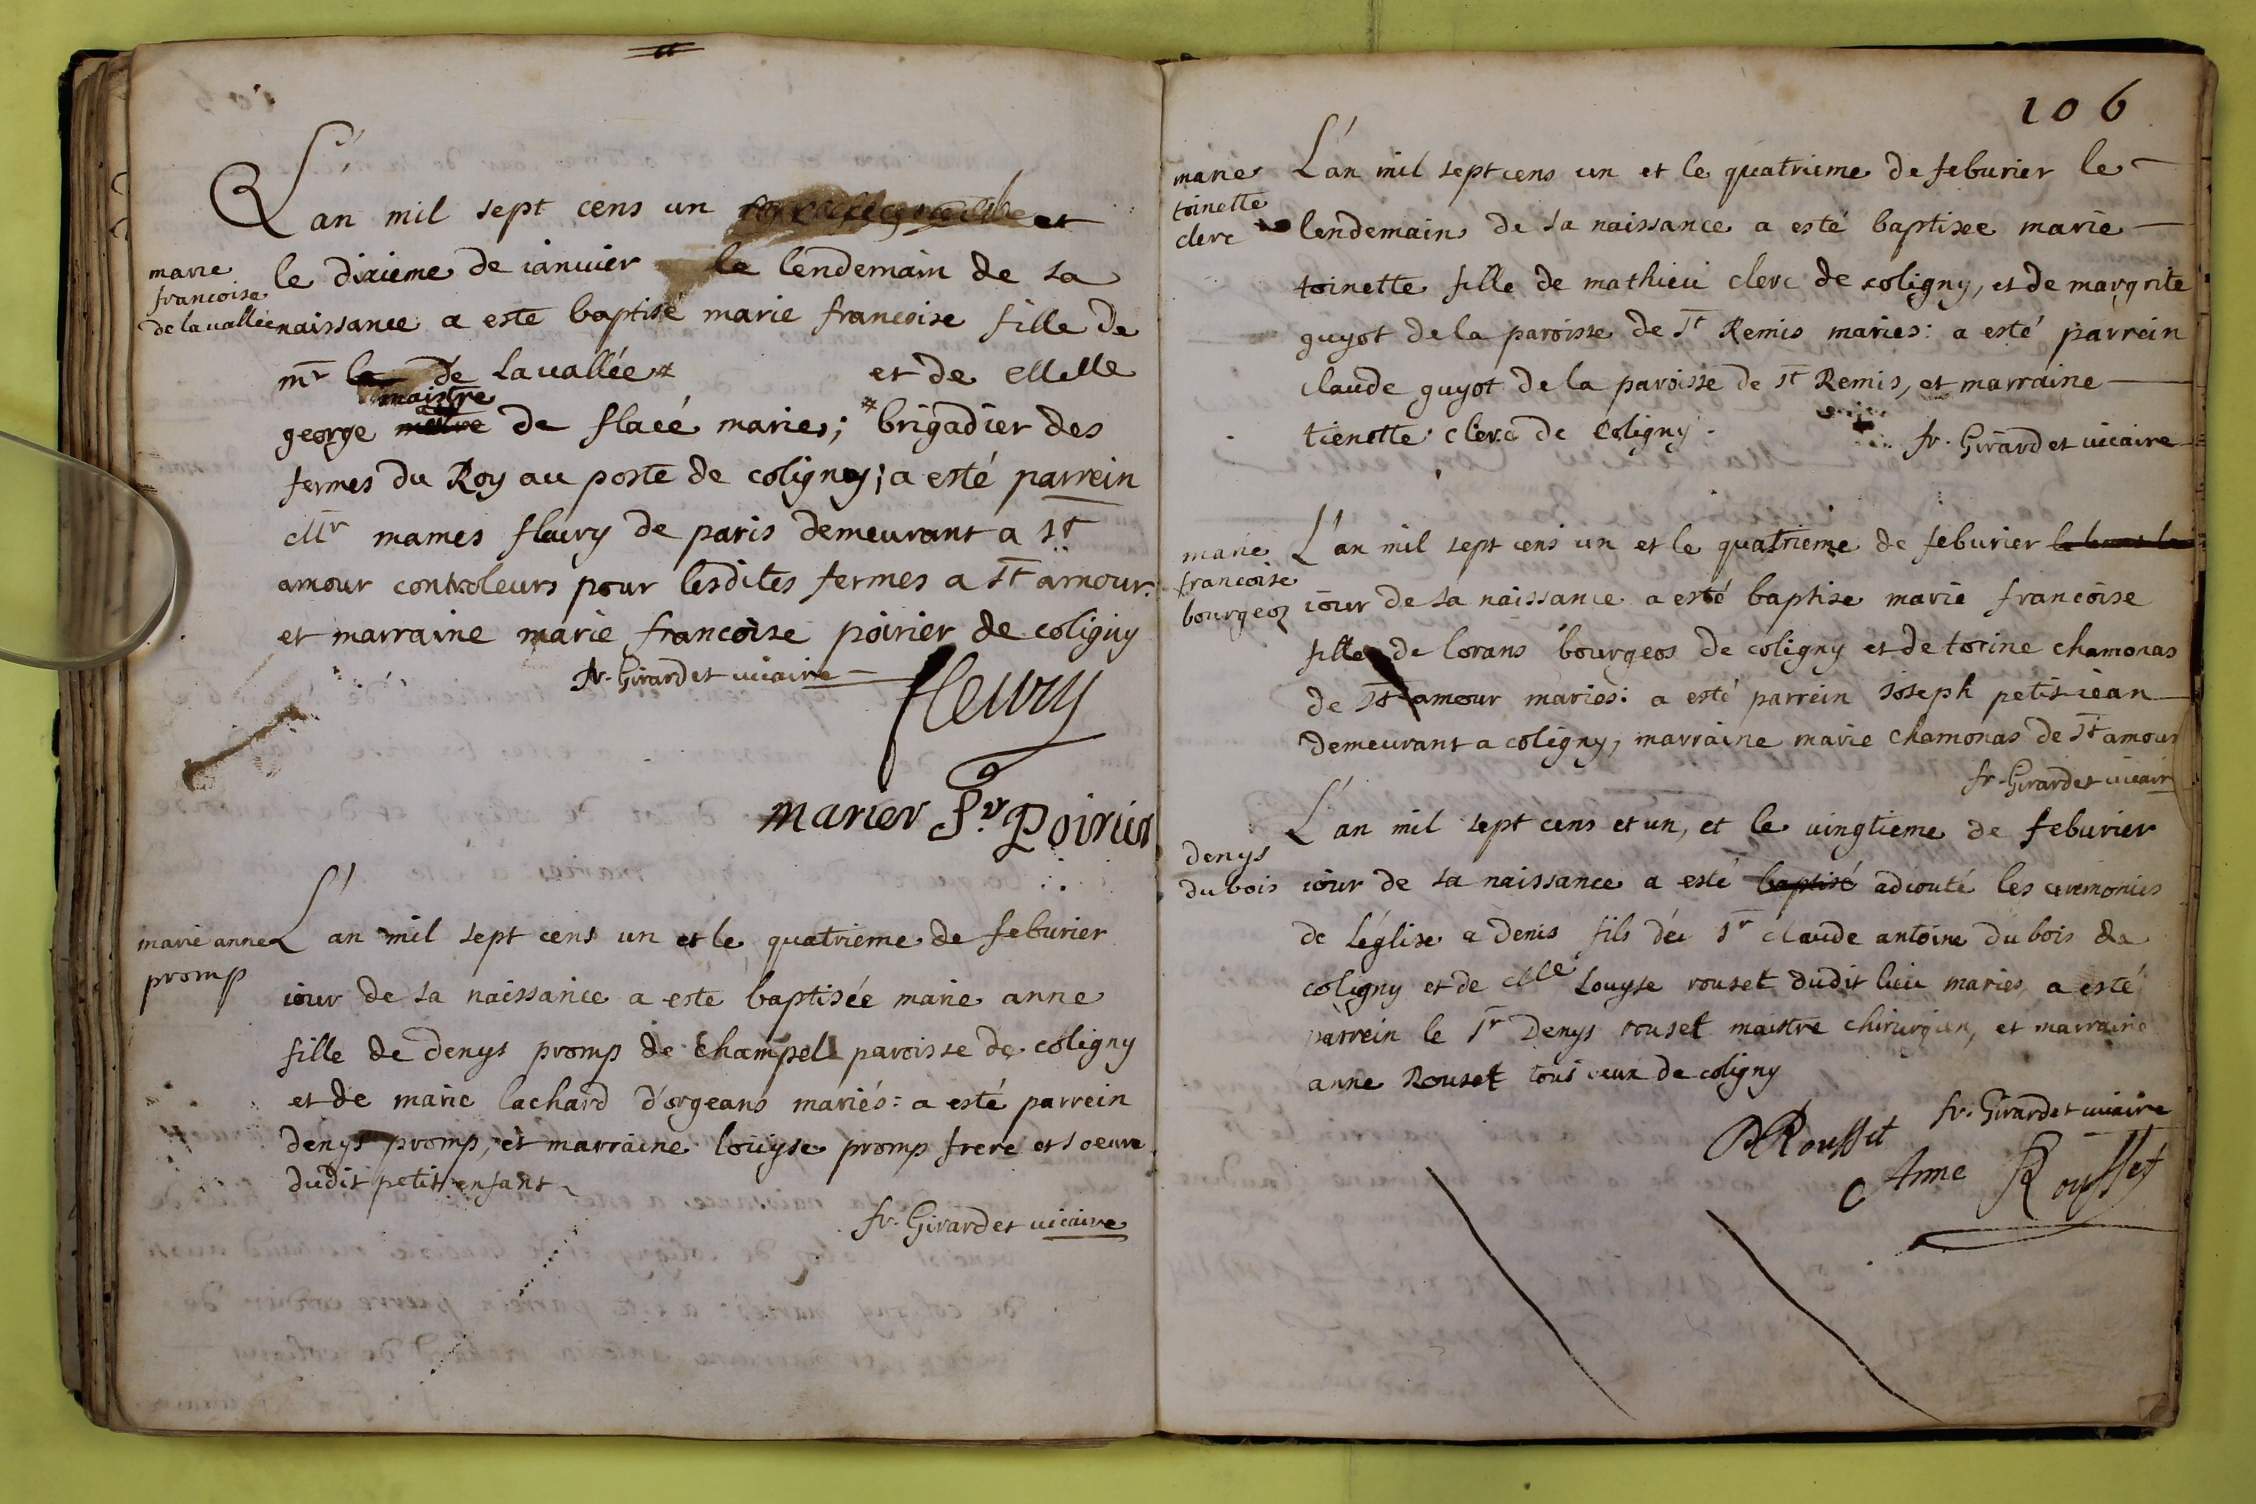 L'an mil sept cens un et
marie
francoise
de la vallée
le dixieme de ianvier le lendemain de sa
naissance a esté baptisé marie francoise fille de
mr de lavallée # et de Melle
george maistre de flacé maries; # brigadier des
fermes du Roy au poste de coligny; a esté parrein
Mr mames fleury de paris demeurant a st
amour controleurs pour lesdites fermes a st amour.
et marraine marie francoise poirier de coligny
fr. Girardet vicaire
fleury
marier fr Poirier
marie anne
promp
L'an mil sept cens un et le quatrieme de feburier
iour de sa naissance a esté baptisée marie anne
fille de denys promp de Champel paroisse de coligny
et de marie lachard d'orgeans mariés: a esté parrein
denys promp, et marraine louyse promp frere et soeure
dudit petit enfant
fr. Girardet vicaire
106
marie
toinette
clerc
L'an mil sept cens un et le quatrieme de feburier le
lendemain de sa naissance a esté baptisee marie
toinette fille de mathieu clerc de coligny, et de margrite
guyot de la paroisse de st Remis maries: a esté parrein
claude guyot de la paroisse de st Remis, et marraine
tienette clerc de Coligny.
fr. Girardet vicaire
marie
francoise
bourgeoz
L'an mil sept cens un et le quatrieme de feburier
iour de sa naissance a esté baptise marie francoise
fille de lorans bourgeos de coligny et de toeine chamonas
de st amour maries: a esté parrein Joseph petit iean
demeurant a coligny, marraine marie chamonas de st amour
fr. Girardet vicair
denys
du bois
L'an mil sept cens et un, et le vingtieme de feburier
iour de sa naissance a esté baptisé adiouté les ceremonies
de léglise a denis fils du sr claude antoine du bois de
coligny et de Melle Louyse rouset dudit lieu maries, a esté
parrein le sr Denys rouset maistre chirurgien, et marraine
anne Rouset tous ceux de coligny
fr. Girardet vicaire
D Rousset
Anne Rousset